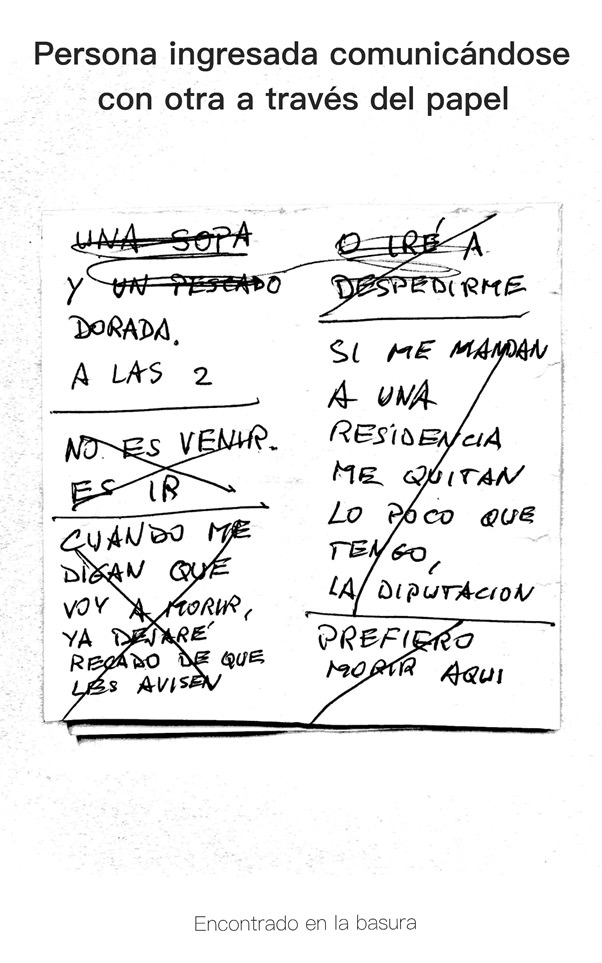 Persona ingresada comunicándose
con otra a través del papel
UNA SOPA
Y UN PESCADO
DORADA.
A LAS 2
NO ES VENIR.
ES IR
CUANDO ME
DIGAN QUE
VOY A MORIR,
YA DEJARÉ
RECADO DE QUE
LES AVISEN
O IRÉ A
DESPEDIRME
SI ME MANDAN
A UNA
RESIDENCIA
ME QUITAN
LO POCO QUE
TENGO,
LA DIPUTACION
PREFIERO
MORIR AQUI
Encontrado en la basura